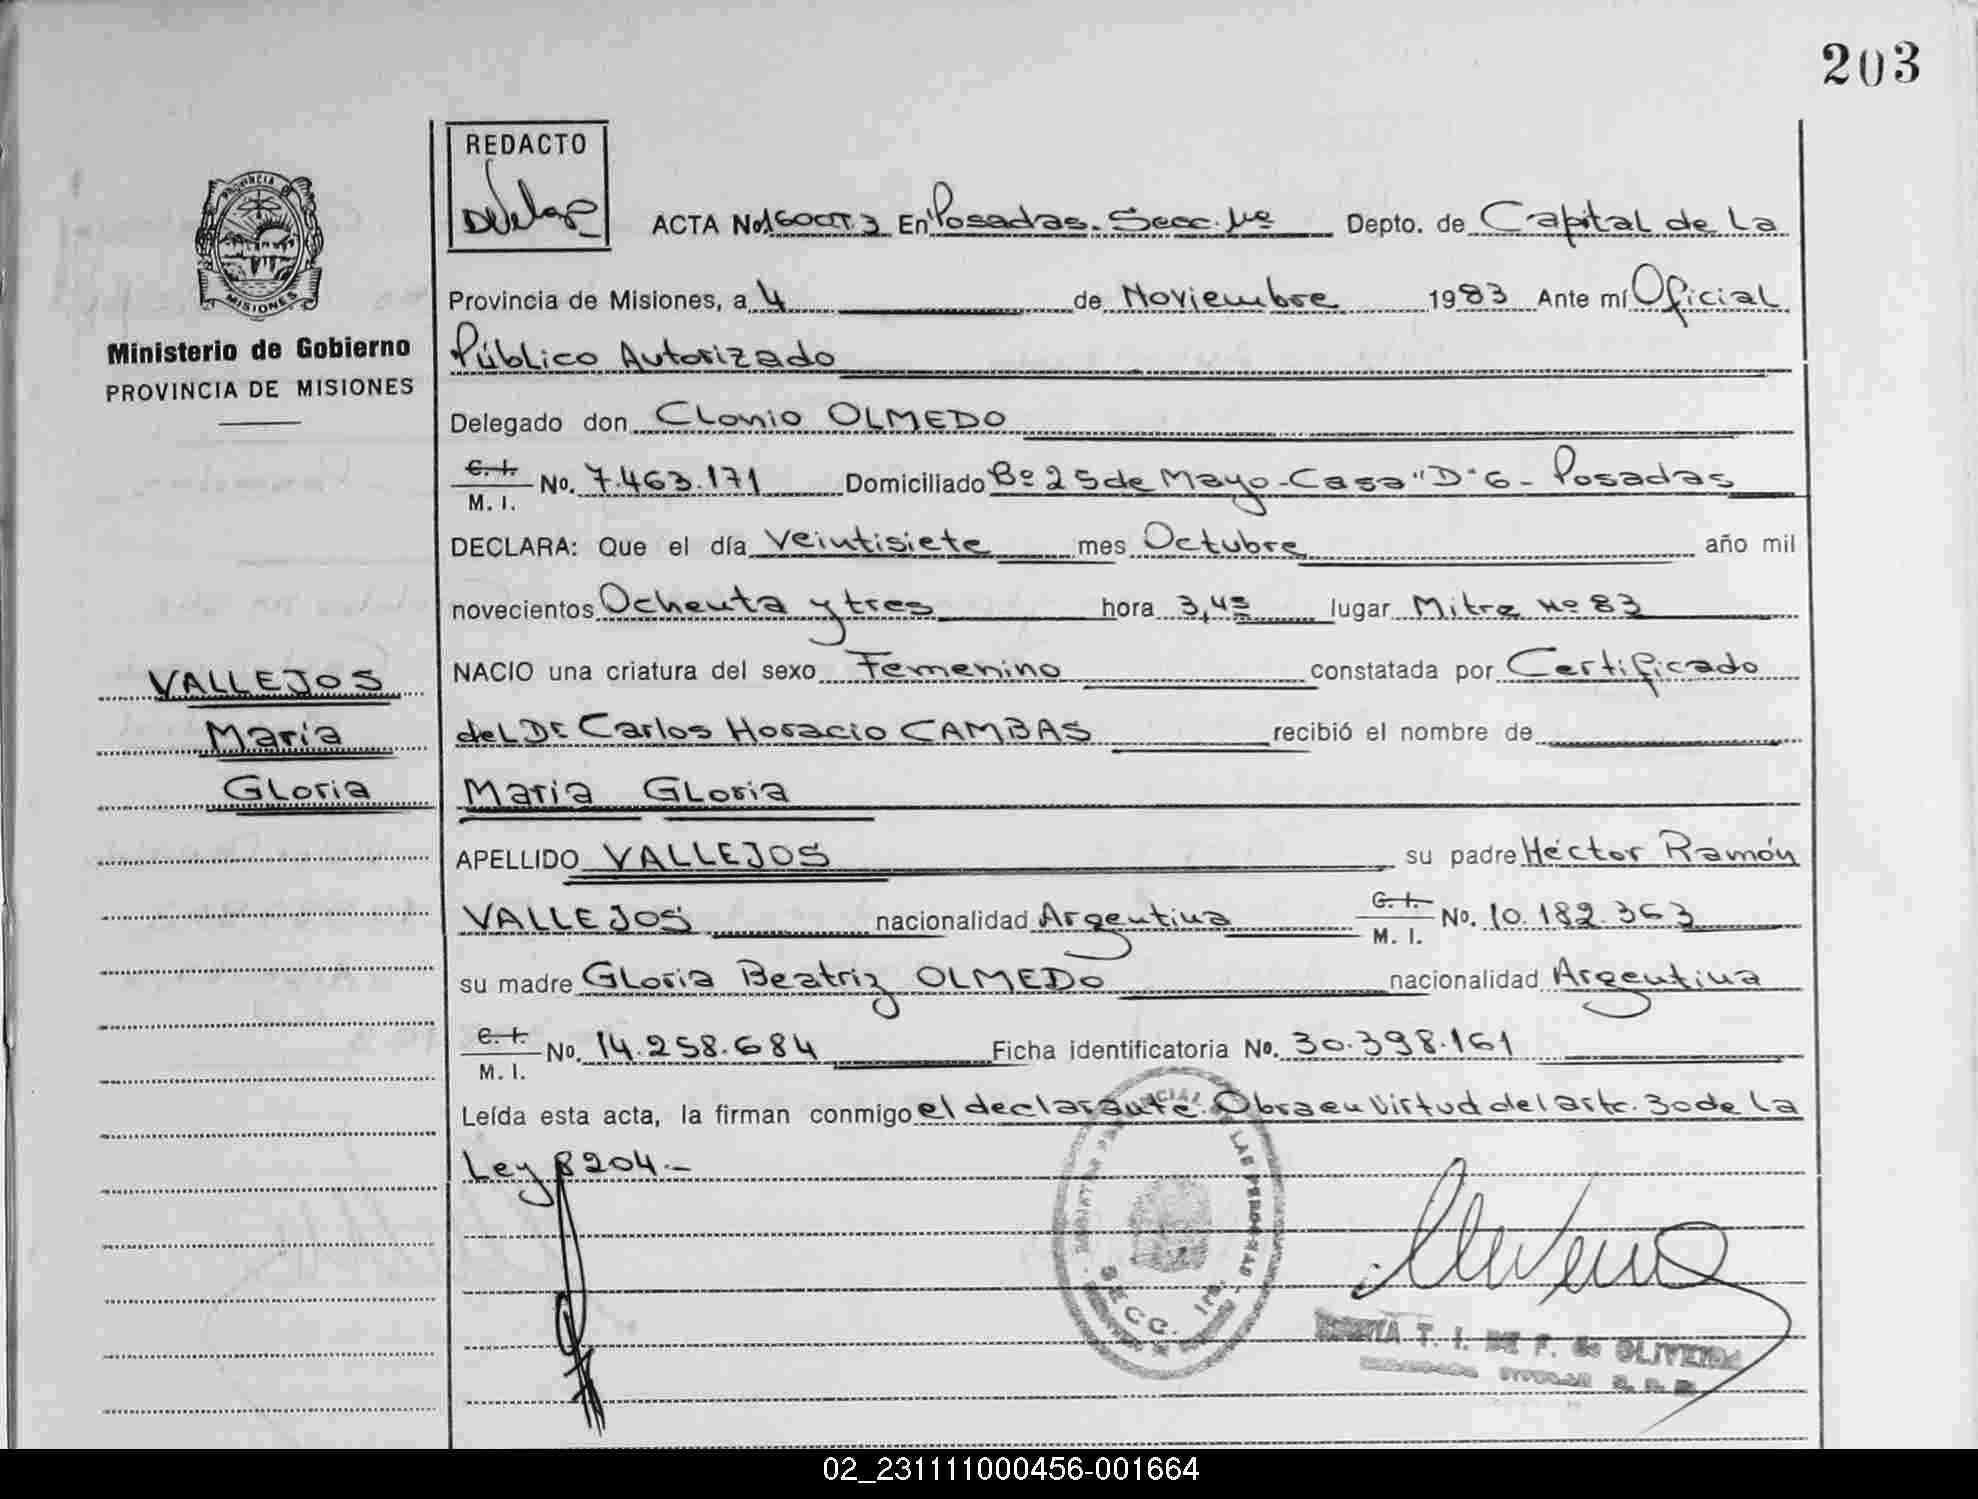 203
REDACTO
ACTA No 1600T.3 En Posadas. Secc. 1ra Depto. de Capital de La
PROVINCIA
MISIONES
Provincia de Misiones, a 4 de Noviembre 1983 Ante mí Oficial
Ministerio de Gobierno
PROVINCIA DE MISIONES
Público Autorizado
Delegado don Clonio OLMEDO
C. I.
M. I. No. 7.463.171 Domiciliado Bº 25 de Mayo - Casa "D" 6 - Posadas
DECLARA: Que el día Veintisiete mes Octubre año mil
novecientos Ochenta y tres hora 3,45 lugar Mitre Nº 83
NACIO una criatura del sexo Femenino constatada por Certificado
VALLEJOS
María
Gloria
del Dr. Carlos Horacio CAMBAS recibió el nombre de
Maria Gloria
APELLIDO VALLEJOS su padre Héctor Ramón
VALLEJOS nacionalidad Argentina C. I.
M. I. No. 10.182.363
su madre Gloria Beatriz OLMEDO nacionalidad Argentina
C. I.
M. I. No. 14.258.684 Ficha identificatoria No. 30.398.161
Leída esta acta, la firman conmigo el declarante. Obra en Virtud del artc. 30 de La
Ley 8204.-
SECC. 1ra.
T. I. DE F. de OLIVEIRA
02_231111000456-001664